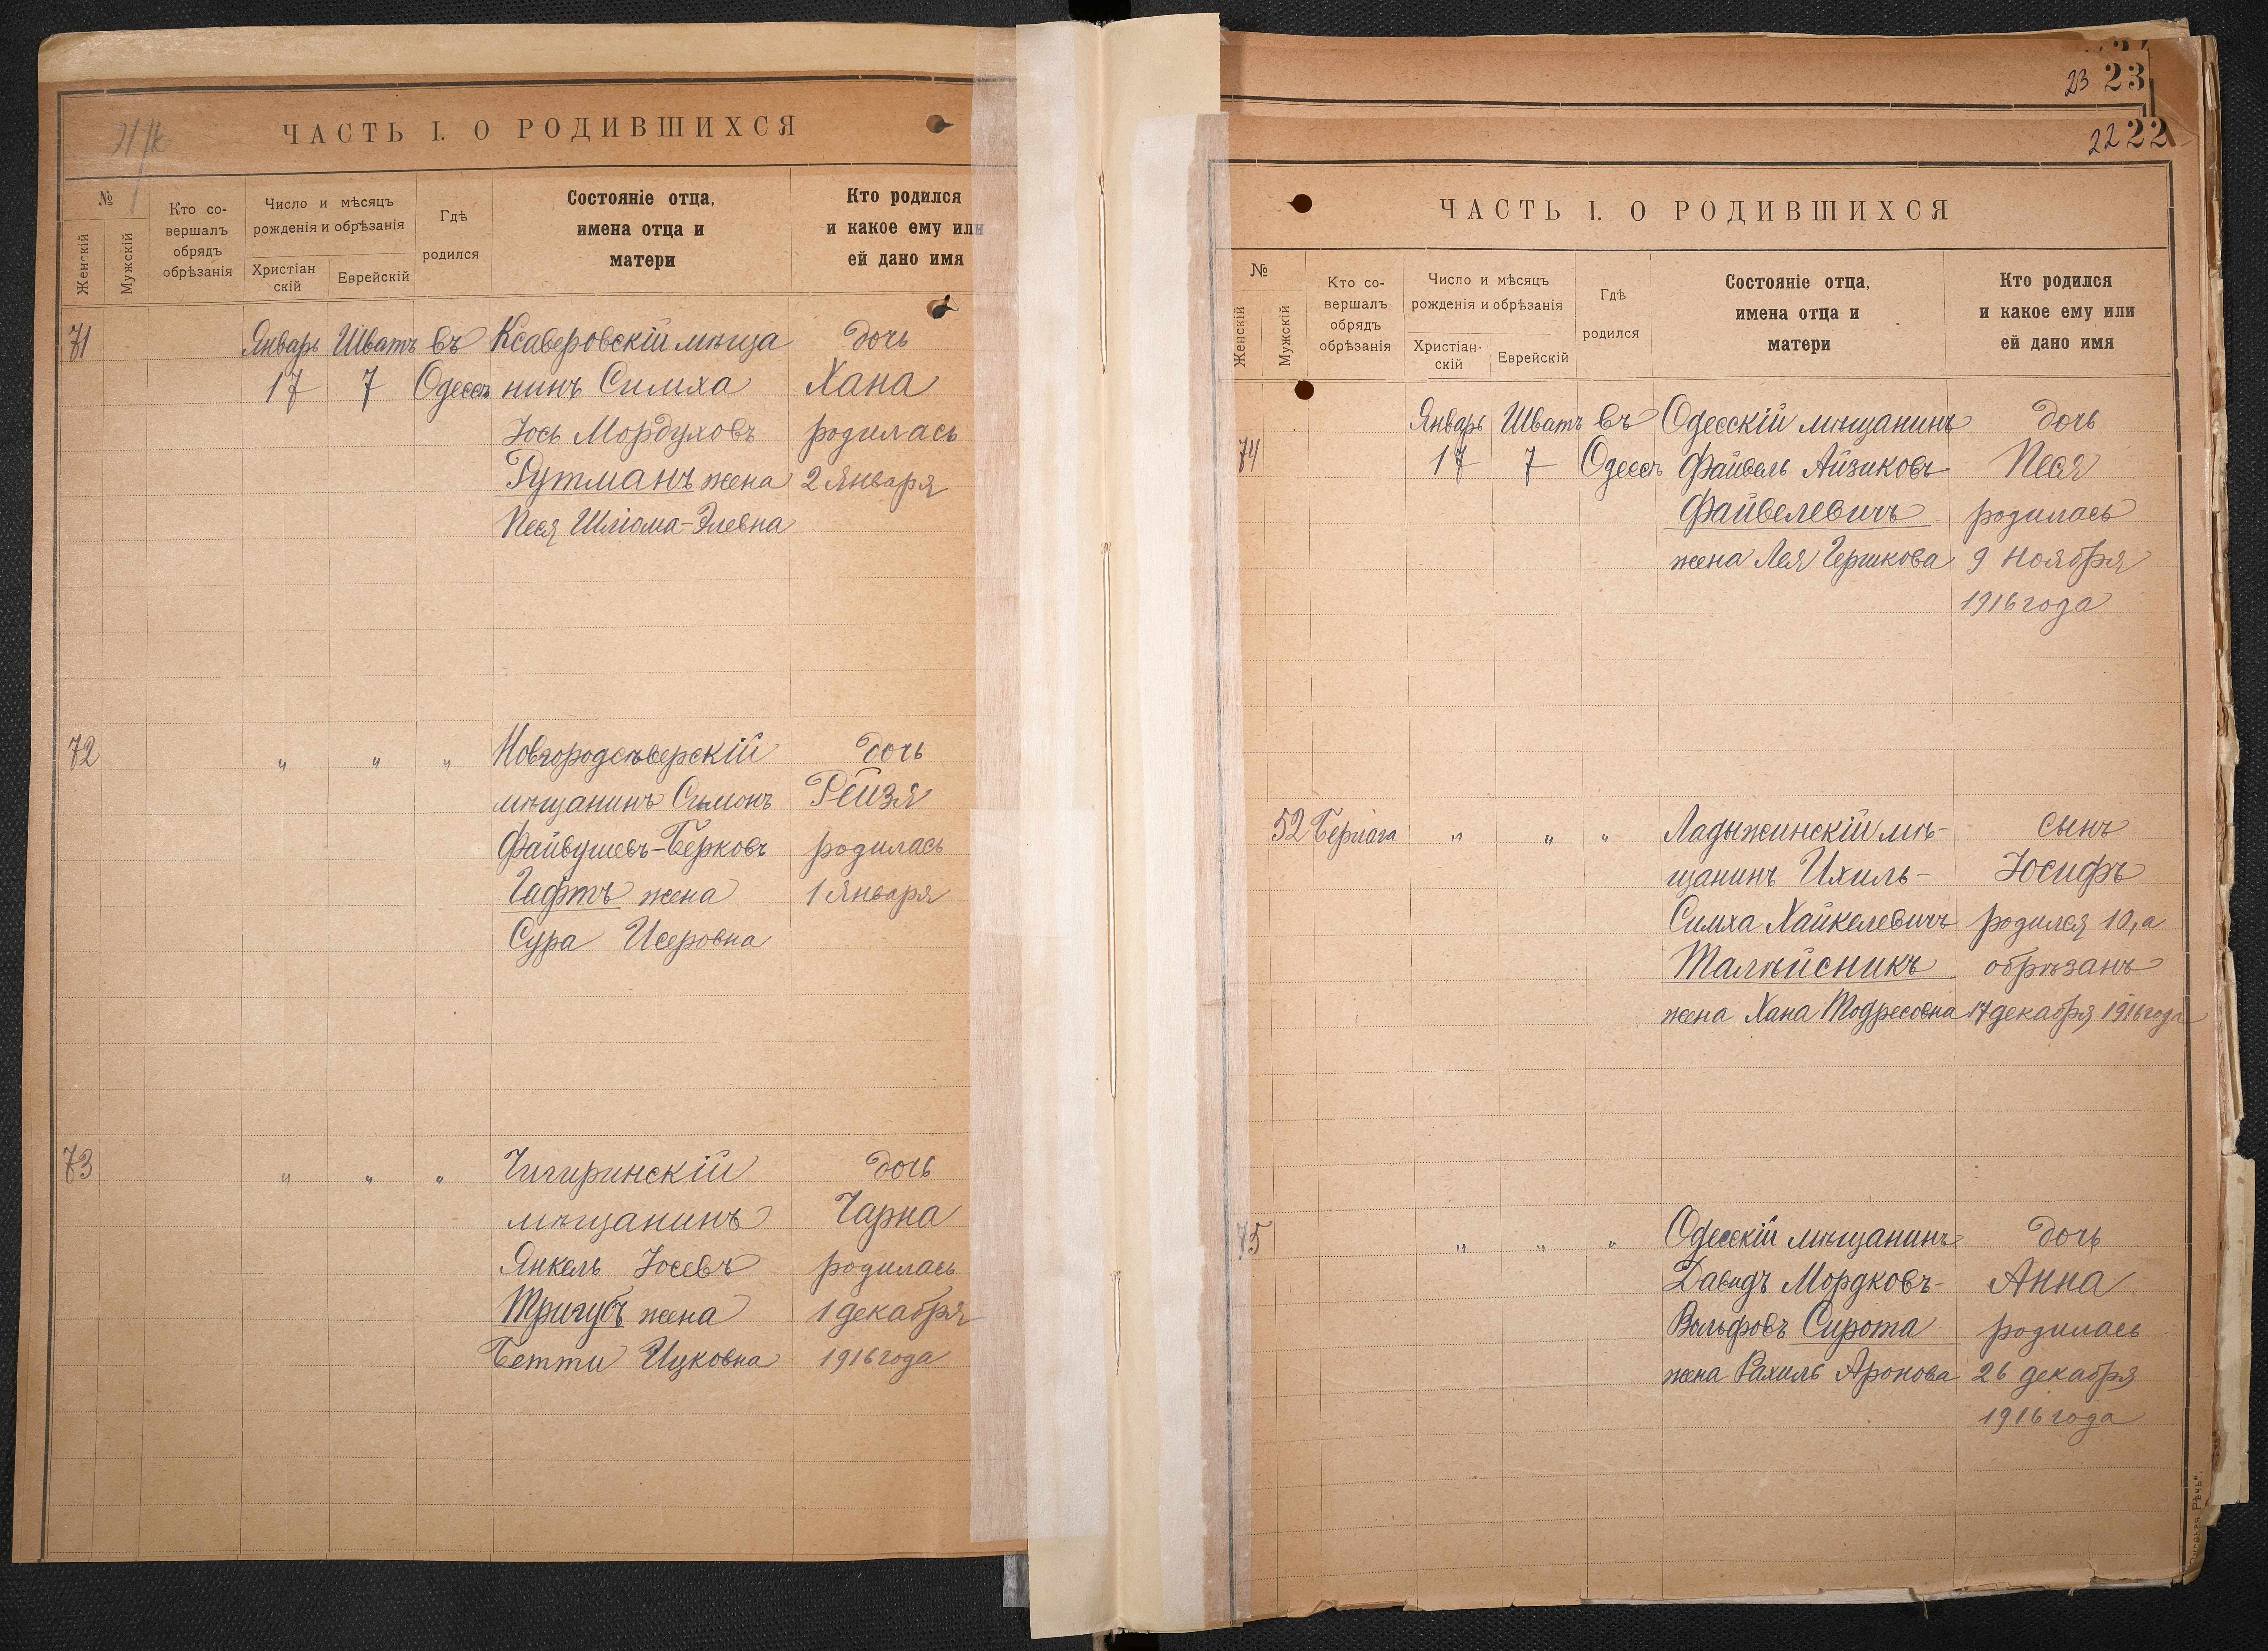 ЧАСТЬ I. О РОДИВШИХСЯ
№
Женскій
Мужскій
Кто со-
вершалъ
обрядъ
обрѣзанія
Число и мѣсяцъ
рожденія и обрѣзанія
Христіан
скій
Еврейскій
Гдѣ
родился
Состояніе отца,
имена отца и
матери
Кто родился
и какое ему или
ей дано имя
71 Январь Шватъ въ Ксаверовскій мѣща дочь
17 7 Одессѣ нинъ Симха Хана
Іось Мордуховъ родилась
Гутманъ жена 2 Января
Песя Шліома-Элевна
72 " " " Новгородсѣверскій дочь
мѣщанинъ Симонъ Рейзя
Файвушевъ-Берковъ родилась
Гафтъ жена 1 Января
Сура Исеровна
73 " " " Чигиринскій дочь
мѣщанинъ Чарна
Янкель Іосевъ родилась
Тригубъ жена 1 декабря
Бетти Ицковна 1916 года
23 23
22 22
ЧАСТЬ I. О РОДИВШИХСЯ
№
Женскій
Мужскій
Кто со-
вершалъ
обрядъ
обрѣзанія
Число и мѣсяцъ
рожденія и обрѣзанія
Христіан-
скій
Еврейскій
Гдѣ
родился
Состояніе отца,
имена отца и
матери
Кто родился
и какое ему или
ей дано имя
Январь Шватъ въ Одесскій мѣщанинъ дочь
74 17 7 Одессѣ Файвель Айзиковъ Песя
Файвелевичъ родилась
жена Лея Гершкова 9 Ноября
1916 года
52 Берлага " " " Ладыжинскій мѣ- сынъ
щанинъ Ихиль- Іосифъ
Симха Хайкелевичъ родился 10, а
Талѣйсникъ обрѣзанъ
жена Хана Тодресовна 17 декабря 1916 года
75 " " " Одесскій мѣщанинъ дочь
Давидъ Мордковъ- Анна
Вольфовъ Сирота родилась
жена Рахиль Аронова 26 декабря
1916 года